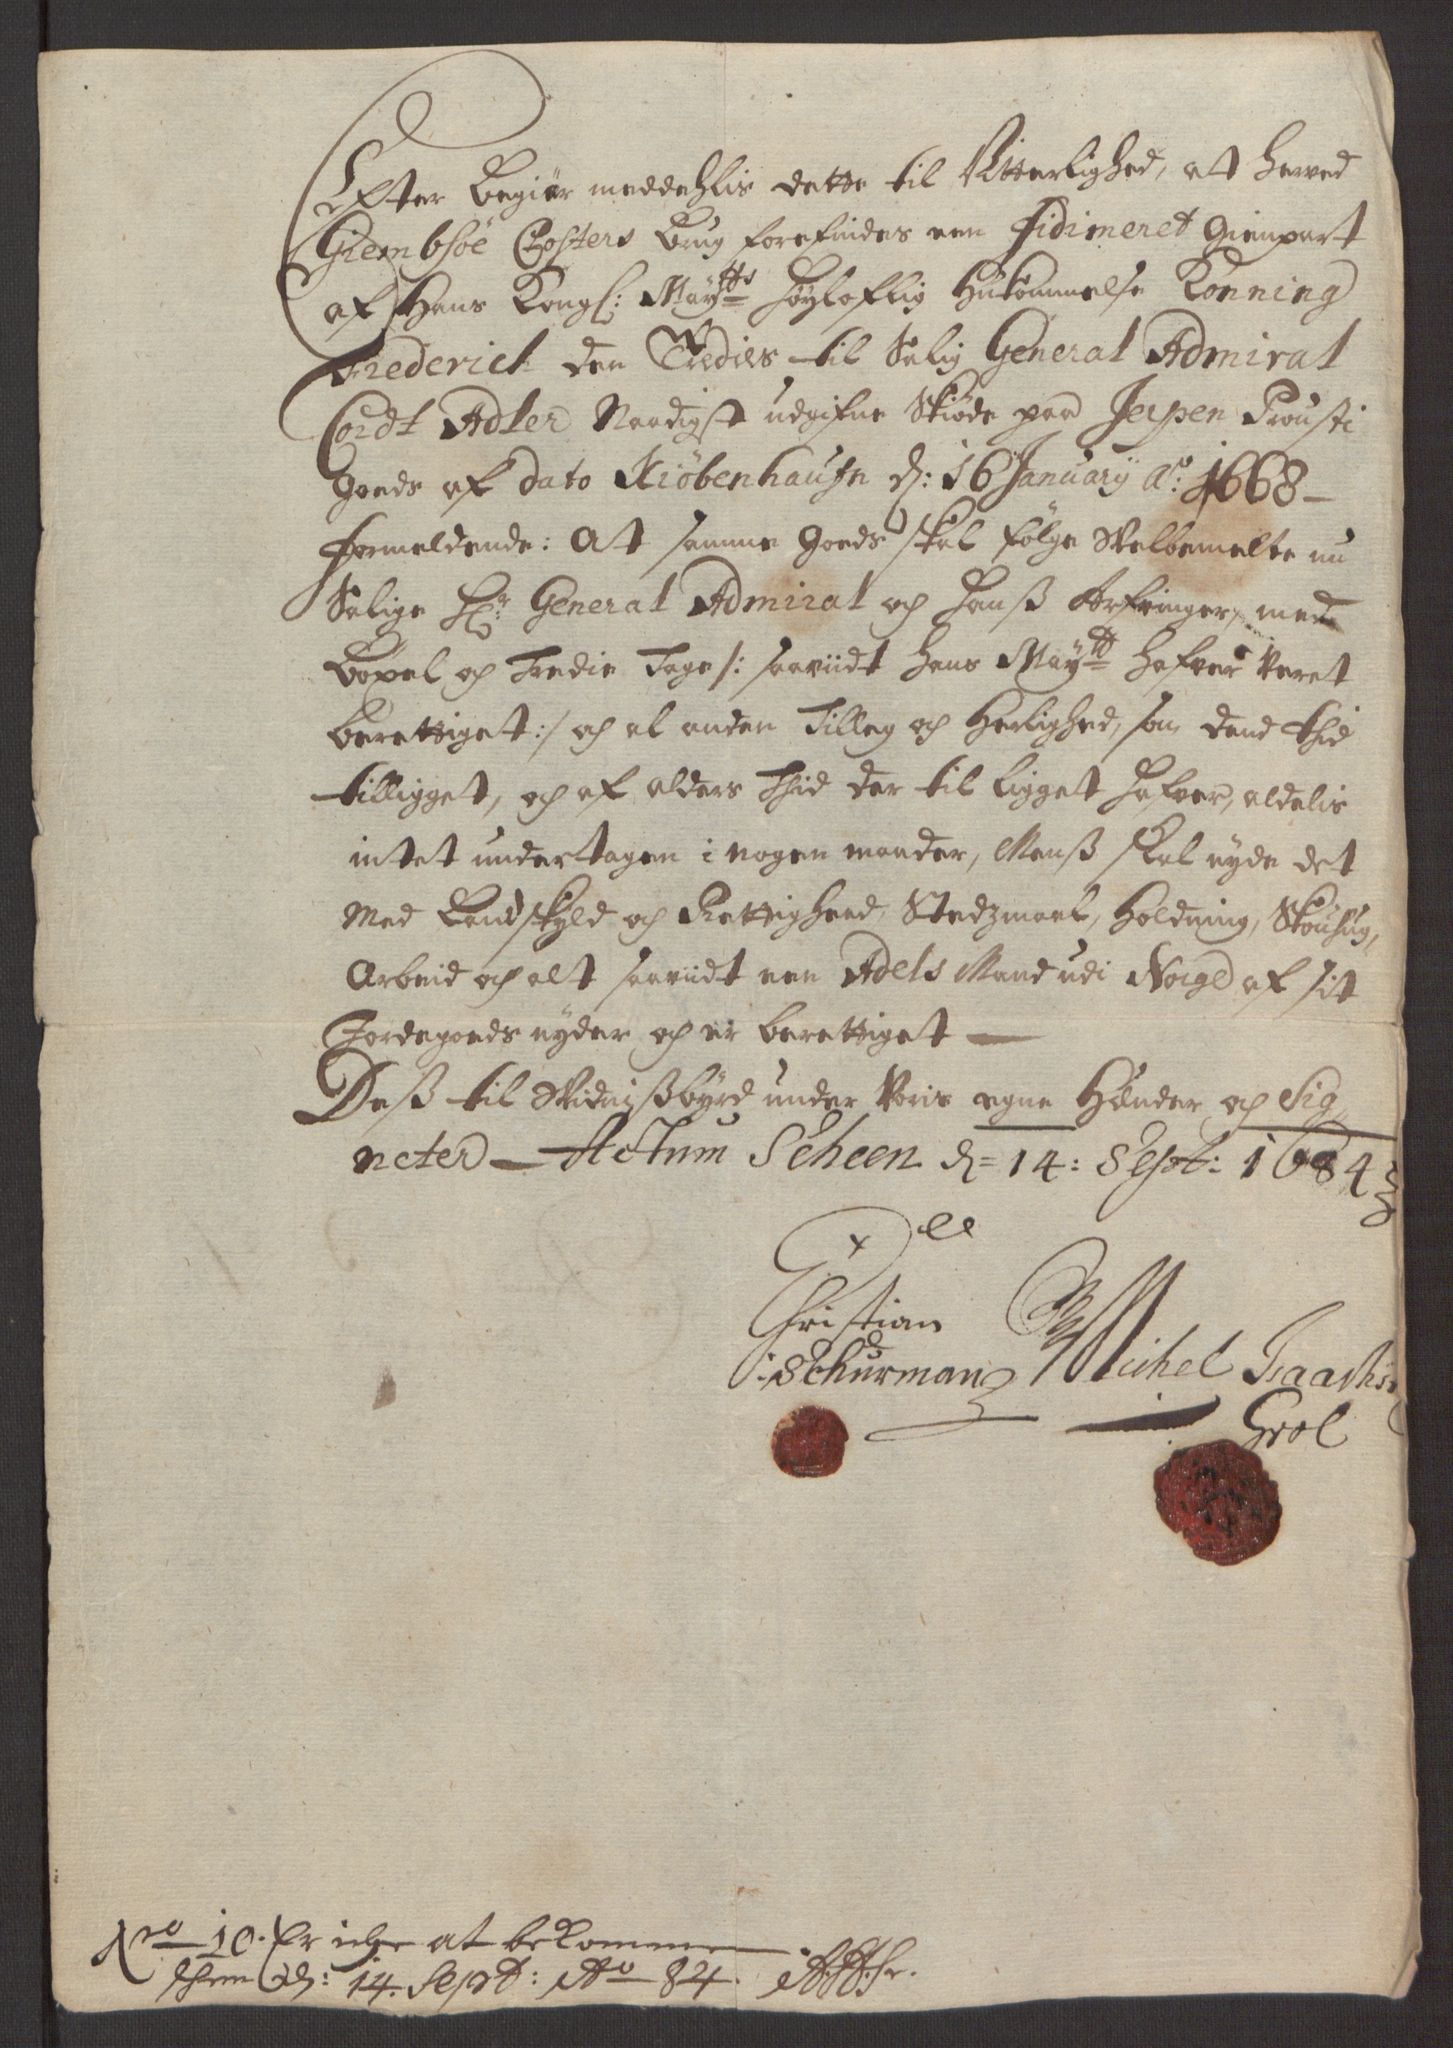 Efter Begiær meddehlis dette til Vitterlighed, att herved
Giembsöe Closters Brug forefindes een Fidimeret Gienpart
af Hans Kongl: Maytts Höyloflig Hukommelse Konning
Frederick den Tredies til Salig General Admiral
Cordt Adler Naadigst udgifne Skiöde paa Jeysen Prousti
Goeds af dato Kiöbenhaufn d: 16 January Ao: 1668 –
formeldende: At samme Goeds skal fölge Welbemelte nu
Salige Hr: General Admiral och Hanß Arfvinger, med
Boxel och Tredie Tage /: saaviidt Hans Maytt hafver Veret
berettiget :/ och al anden Tilleg och Herlighed, som dend Thid
tilligget, och af alders Thid der til ligget hafver, aldelis
intet undertagen i nogen maader, Mens skal nyde det
Med Landskyld och Rettighed, Stedzmaal, Holdning, Skouhug,
Arbeid och alt saaviidt een Adels Mand udi Norge af sit
Jordegoeds nyder och er berettiget —
Deß til Vidnißbyrd under Voris egne Hænder och Sig
neter – Actum Scheen d= 14: Sept: 1684
Christian
Schurman Michel Isaachs
Grol
Nro 10. Er icke at bekomme
Scheen d: 14. Sept: Ao 84.